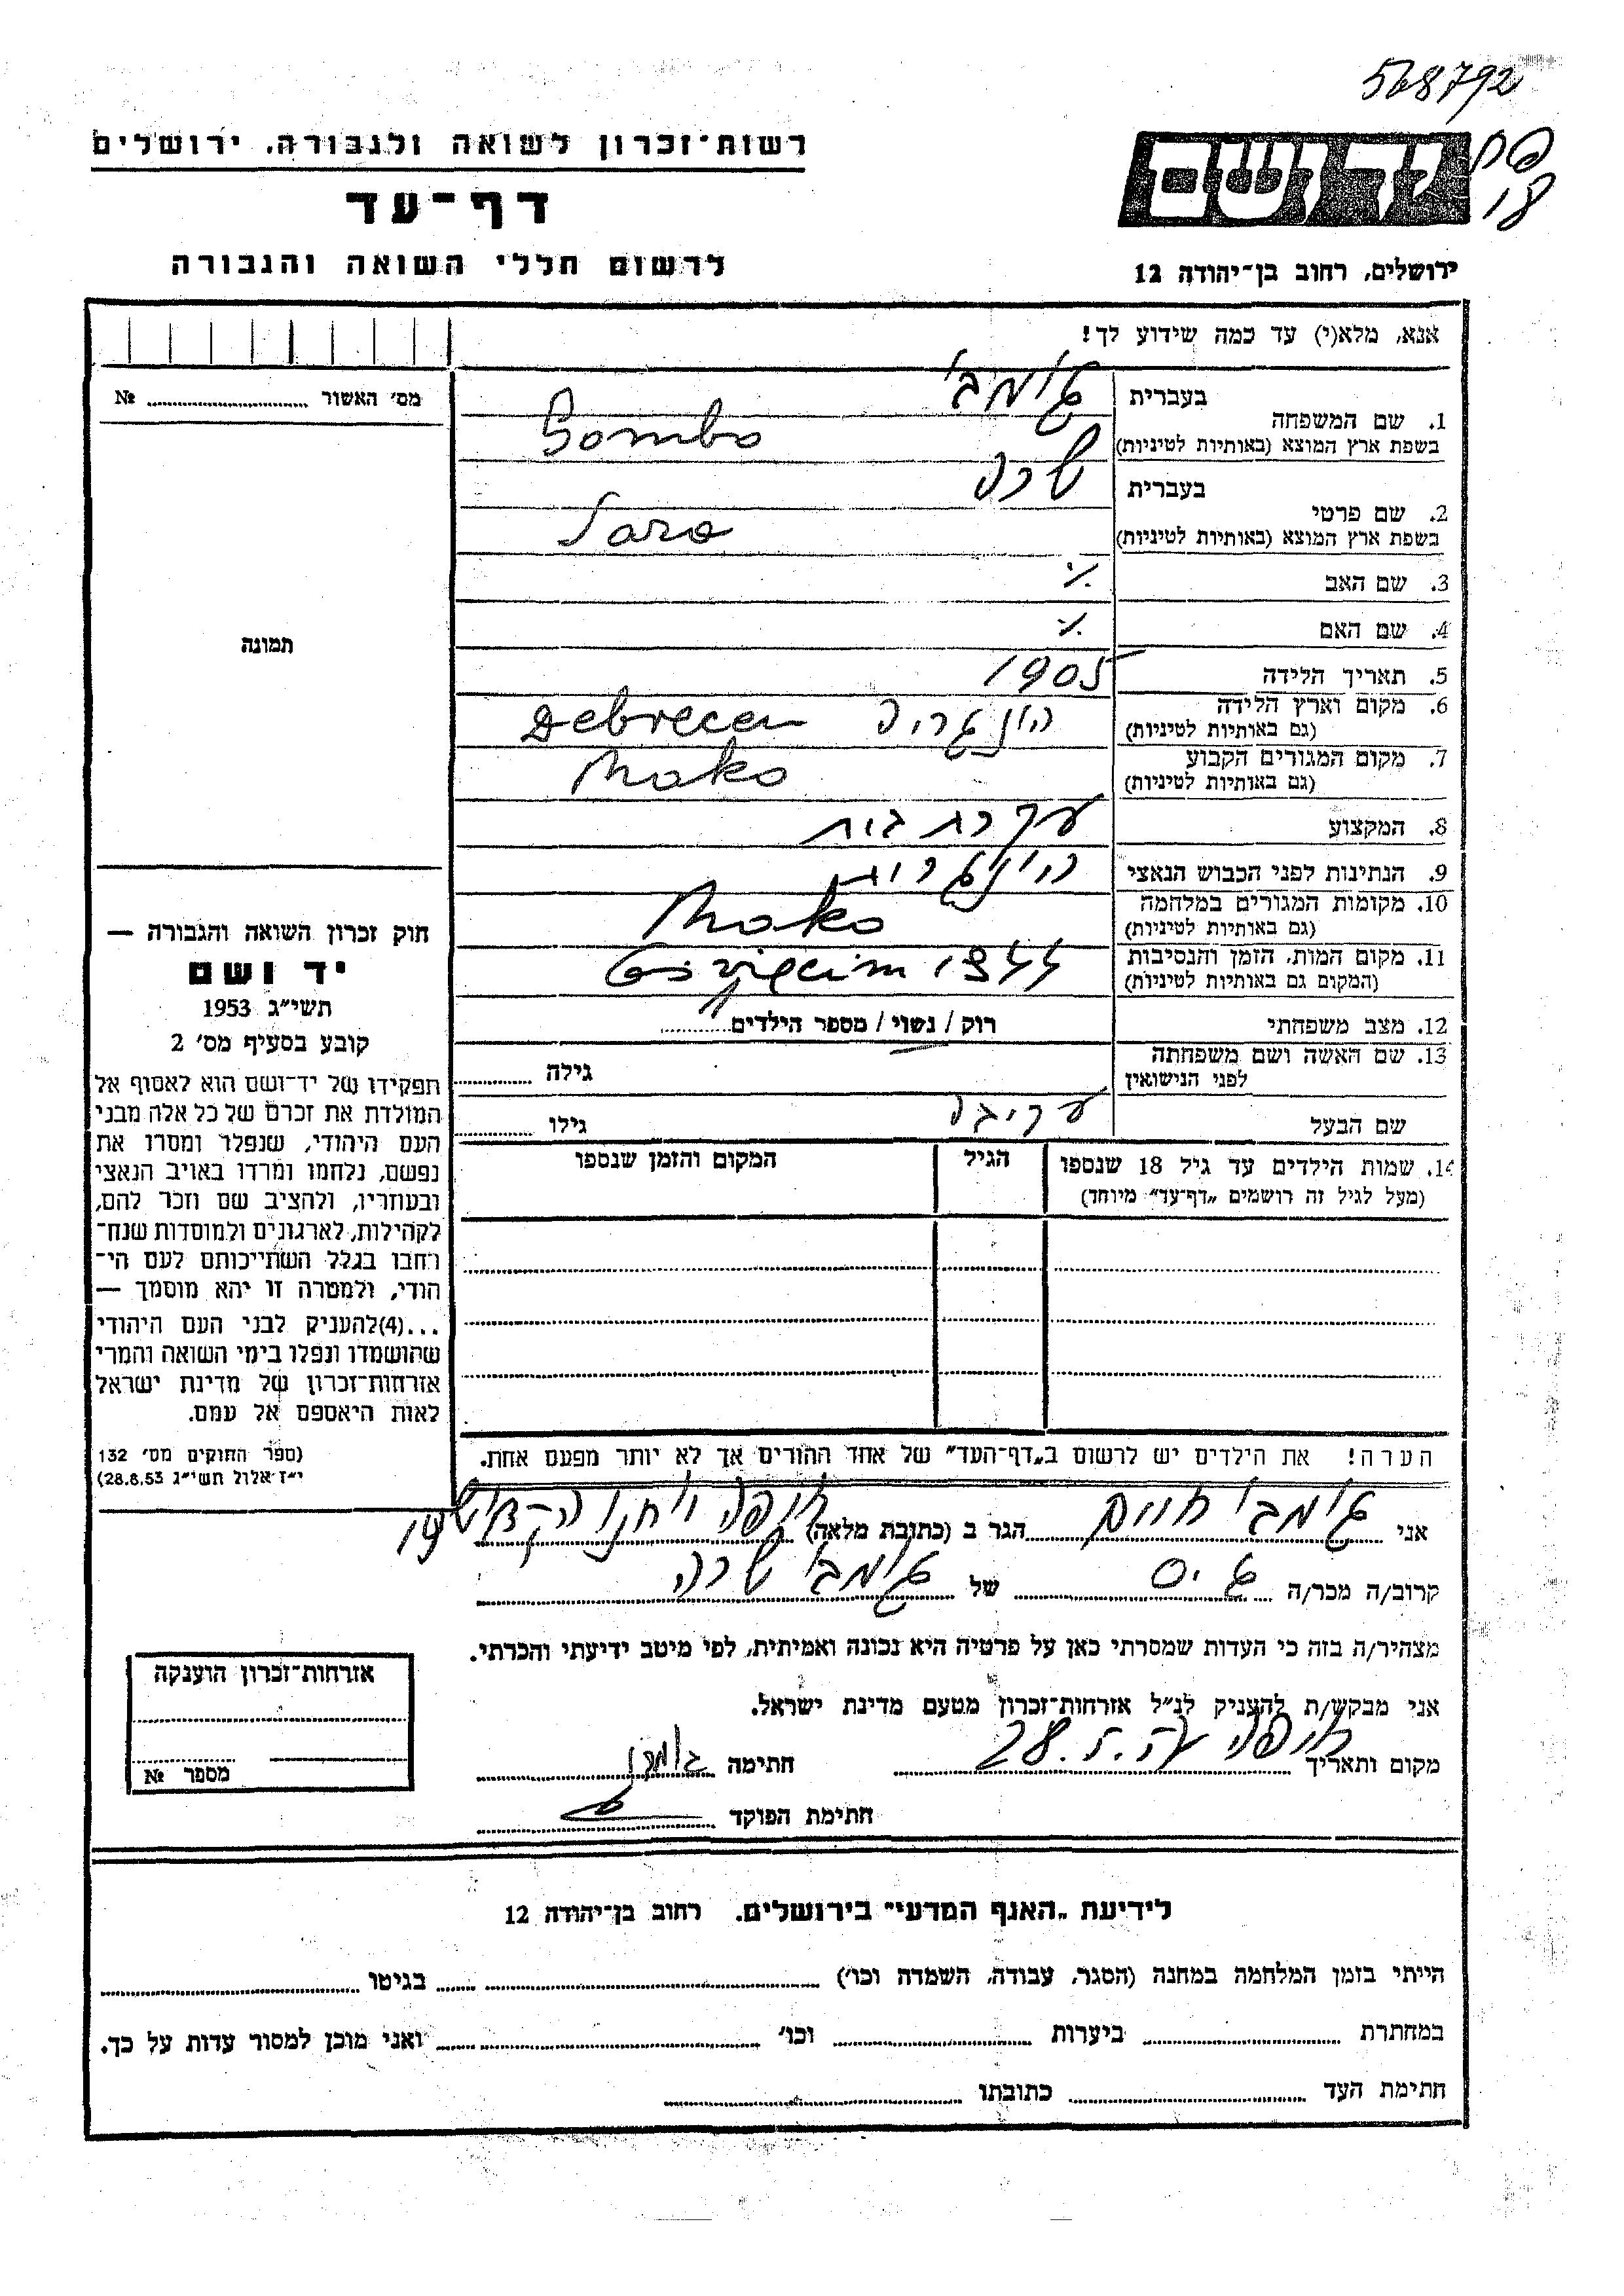 568792
רשות־זכרון לשואה ולגבורה, ירושלים
יד ושם
18
דף־עד
לרשום חללי השואה והגבורה
ירושלים, רחוב בן־יהודה 12
אנא, מלא(י) עד כמה שידוע לך!
מס׳ האשור № 
1. שם המשפחה
בעברית גומבו
בשפת ארץ המוצא (באותיות לטיניות) Gombo
2. שם פרטי
בעברית שרה
בשפת ארץ המוצא (באותיות לטיניות) Sara
3. שם האב ./.
4. שם האם ./.
5. תאריך הלידה 1905
6. מקום וארץ הלידה (גם באותיות לטיניות) הונגריה Debrecen
7. מקום המגורים הקבוע (גם באותיות לטיניות) Mako
8. המקצוע עקרת בית
9. הנתינות לפני הכבוש הנאצי הונגרית
10. מקומות המגורים במלחמה (גם באותיות לטיניות) Mako
11. מקום המות, הזמן והנסיבות (המקום גם באותיות לטיניות) 1944
12. מצב משפחתי רוק / נשוי / מספר הילדים
13. שם האשה ושם משפחתה לפני הנישואין
גילה
שם הבעל
גילו
14. שמות הילדים עד גיל 18 שנספו
(מעל לגיל זה רושמים „דף־עד״ מיוחד)
הגיל
המקום והזמן שנספו
הערה! את הילדים יש לרשום ב„דף־העד״ של אחד ההורים אך לא יותר מפעם אחת.
תמונה
חוק זכרון השואה והגבורה —
יד ושם
תשי״ג 1953
קובע בסעיף מס׳ 2
תפקידו של יד־ושם הוא לאסוף אל
המולדת את זכרם של כל אלה מבני
העם היהודי, שנפלו ומסרו את
נפשם, נלחמו ומרדו באויב הנאצי
ובעוזריו, ולהציב שם וזכר להם,
לקהילות, לארגונים ולמוסדות שנח־
רחבו בגלל השתייכותם לעם הי־
הודי, ולמטרה זו יהא מוסמך —
...(4)להעניק לבני העם היהודי
שהושמדו ונפלו בימי השואה והמרי
אזרחות־זכרון של מדינת ישראל
לאות היאספם אל עמם.
(ספר החוקים מס׳ 132
י״ז אלול תשי״ג 28.8.53)
אני גומבו חיים הגר ב (כתובת מלאה) חיפה הקדוש 19
קרוב/ה מכר/ה גיס של גומבו שרה
מצהיר/ה בזה כי העדות שמסרתי כאן על פרטיה היא נכונה ואמיתית, לפי מיטב ידיעתי והכרתי.
אני מבקש/ת להעניק לנ״ל אזרחות־זכרון מטעם מדינת ישראל.
מקום ותאריך חיפה 28. חתימה
חתימת הפוקד
אזרחות־זכרון הוענקה
מספר №
לידיעת „האגף המדעי״ בירושלים, רחוב בן־יהודה 12
הייתי בזמן המלחמה במחנה (הסגר, עבודה, השמדה וכו׳) בגיטו
במחתרת ביערות וכו׳ ואני מוכן למסור עדות על כך.
חתימת העד כתובתו